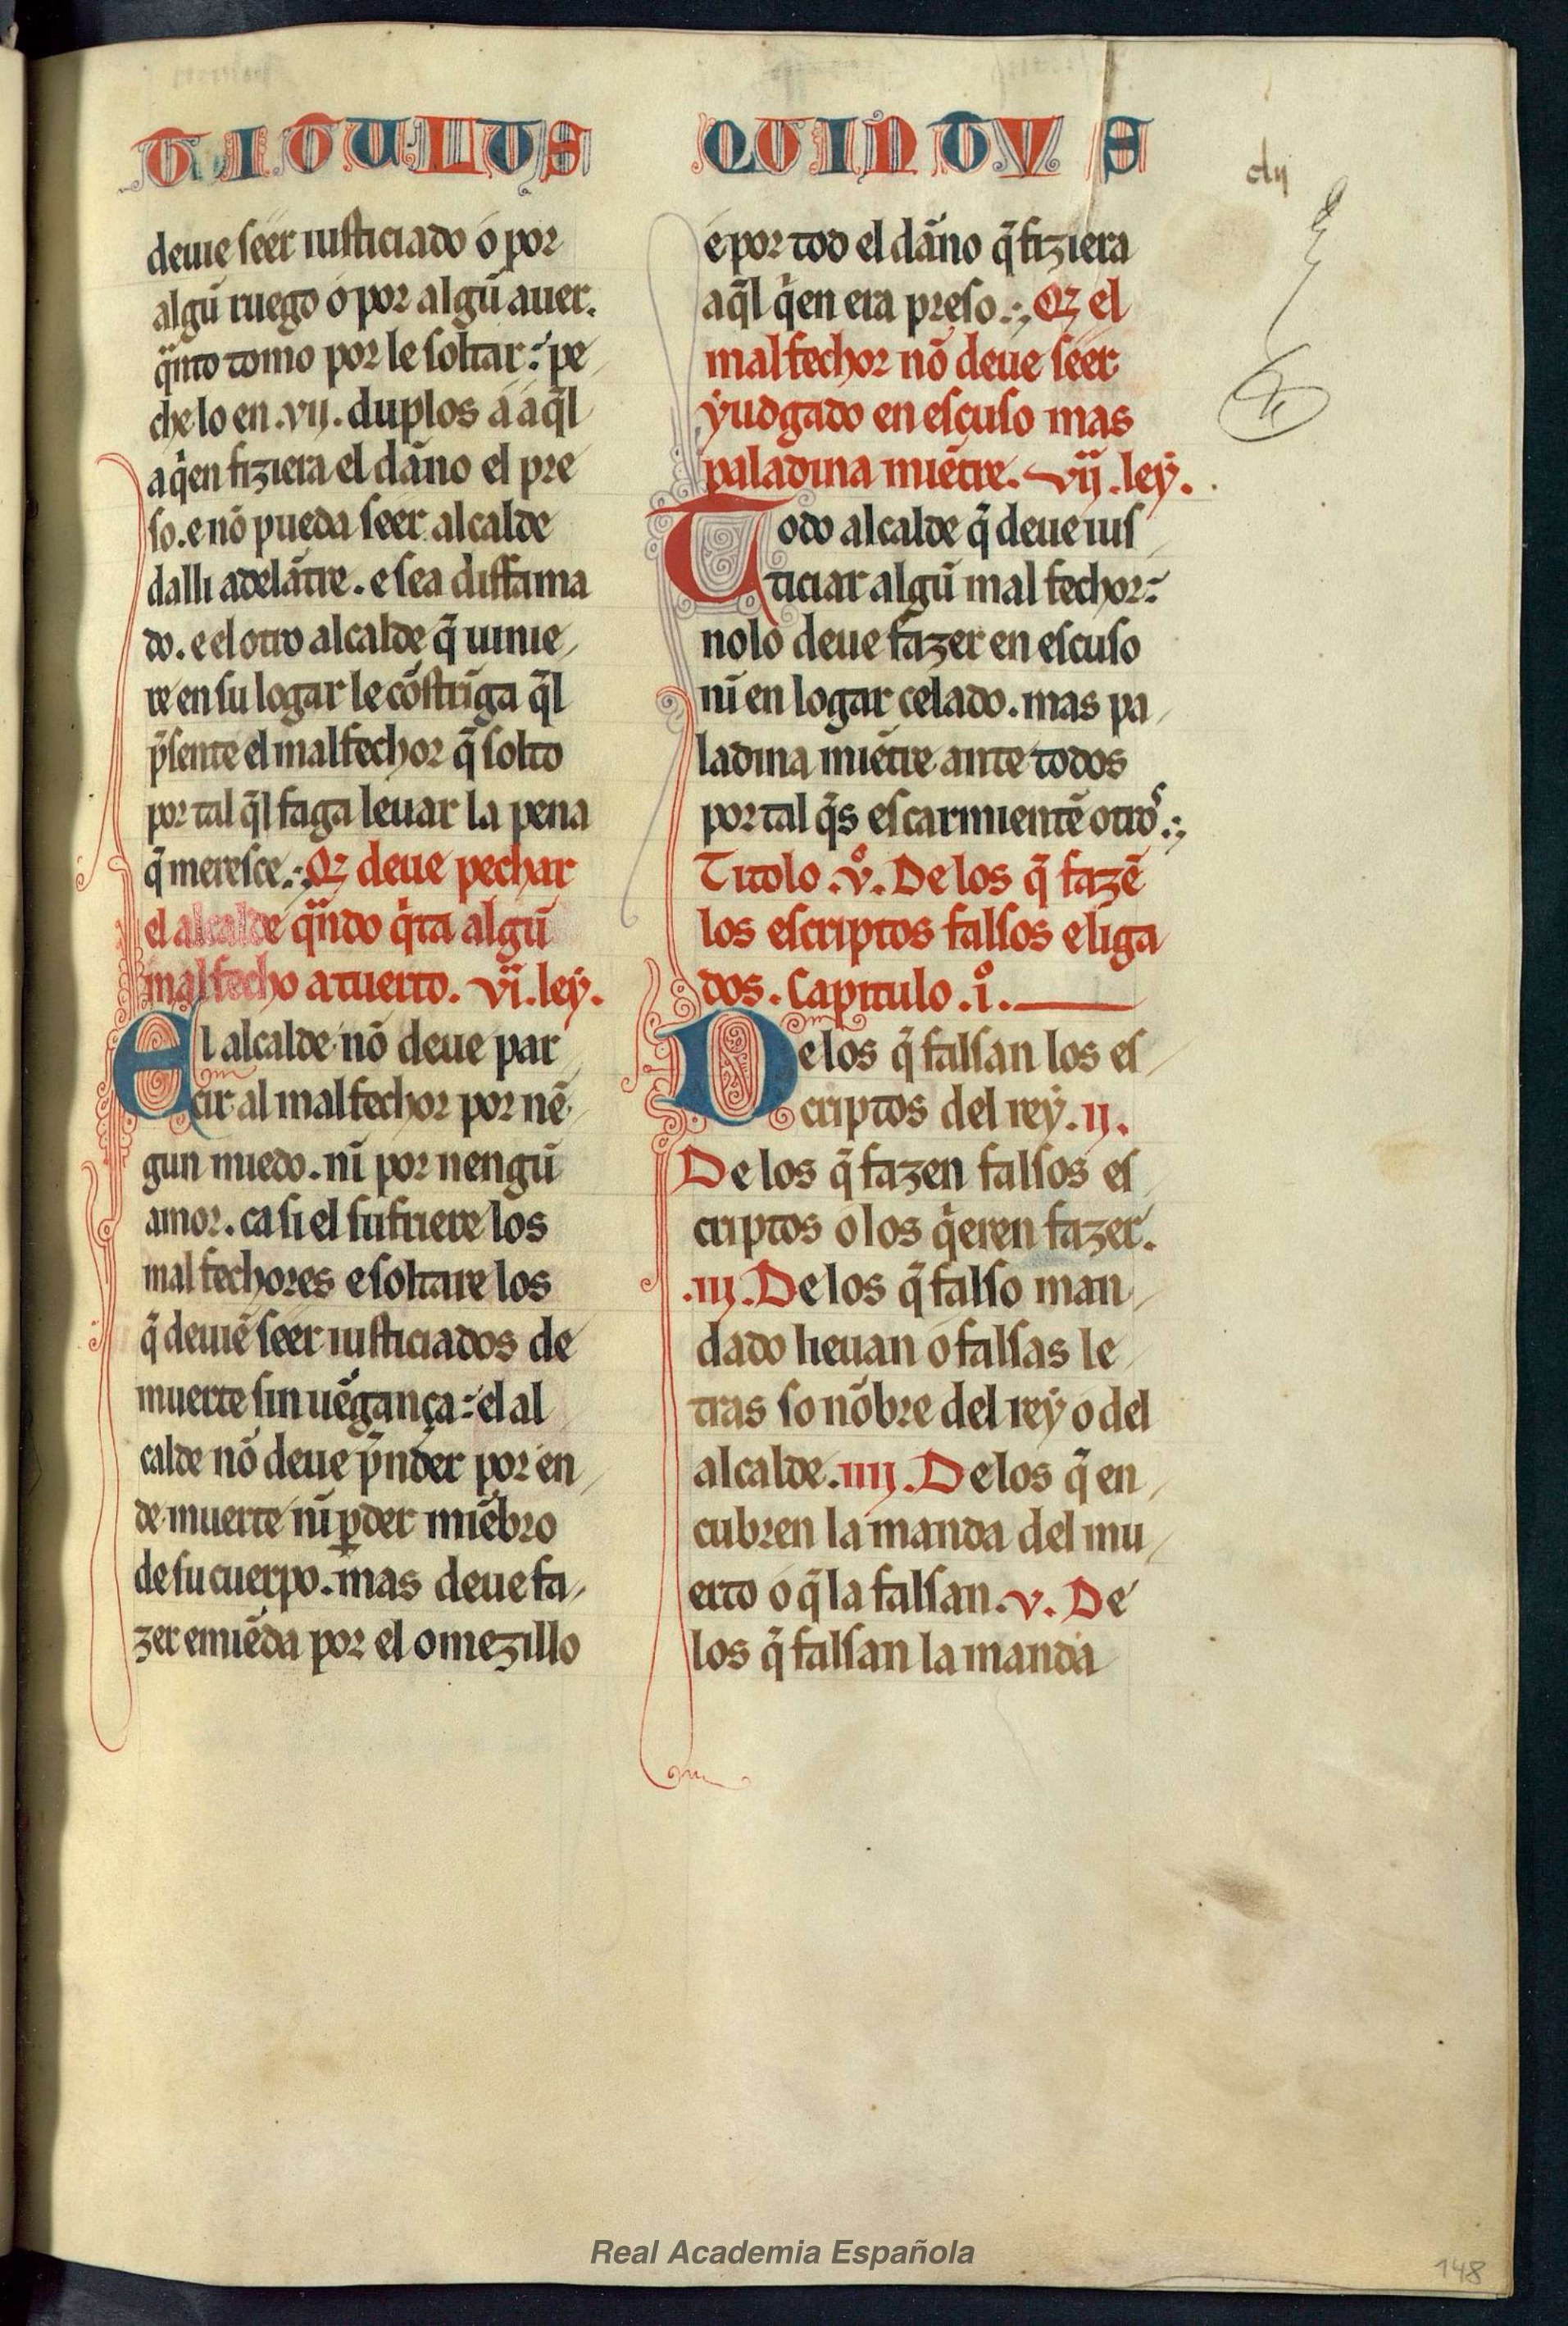 TITULUS QUINTVS
clij
deuie seer iusticiado o por
algũ ruego o por algũ auer.
q̃nto tomo por le soltar: pe
che lo en .vij. duplos a aq̃l
a qͥen fiziera el dãno el pre
so. e nõ pueda seer alcalde
dalli adelãtre. e sea diffama
do. e el otro alcalde q̃ uinie
re en su logar le cõstrĩga q̃l
p̃sente el malfechor q̃ solto
por tal q̃l faga leuar la pena
q̃ meresce.:. Qꝫ deue pechar
el alcalde q̃ndo qͥta algũ
malfecho a tuerto. vi. ley.
El alcalde nõ deue par
cir al malfechor por nẽ
gun miedo. nĩ por nengũ
amor. ca si el sufriere los
malfechores e soltare los
q̃ deuiẽ seer iusticiados de
muerte sin uẽgança: el al
calde nõ deue p̃nder por en
de muerte nĩ ꝑder miẽbro
de su cuerpo. mas deue fa
zer emiẽda por el omezillo
e por tod el dãno q̃ fiziera
aq̃l qͥen era preso.:. Qꝫ el
malfechor nõ deue seer
yudgado en escuso mas
paladina miẽtre. vij. ley.
Todo alcalde q̃ deue ius
ticiar algũ mal fechor:
no lo deue fazer en escuso
nĩ en logar celado. mas pa
ladina miẽtre ante todos
por tal q̃s escarmientẽ otros.:.
Titolo .vº. De los q̃ fazẽ
los escriptos falsos e liga
dos. Capitulo .iº.
De los q̃ falsan los es
criptos del rey. ij.
De los q̃ fazen falsos es
criptos o los qͥeren fazer.
.iij. De los q̃ falso man
dado lieuan o falsas le
tras so nõbre del rey o del
alcalde. iiij. De los q̃ en
cubren la manda del mu
erto o q̃ la falsan. v. De
los q̃ falsan la manda
Real Academia Española
148